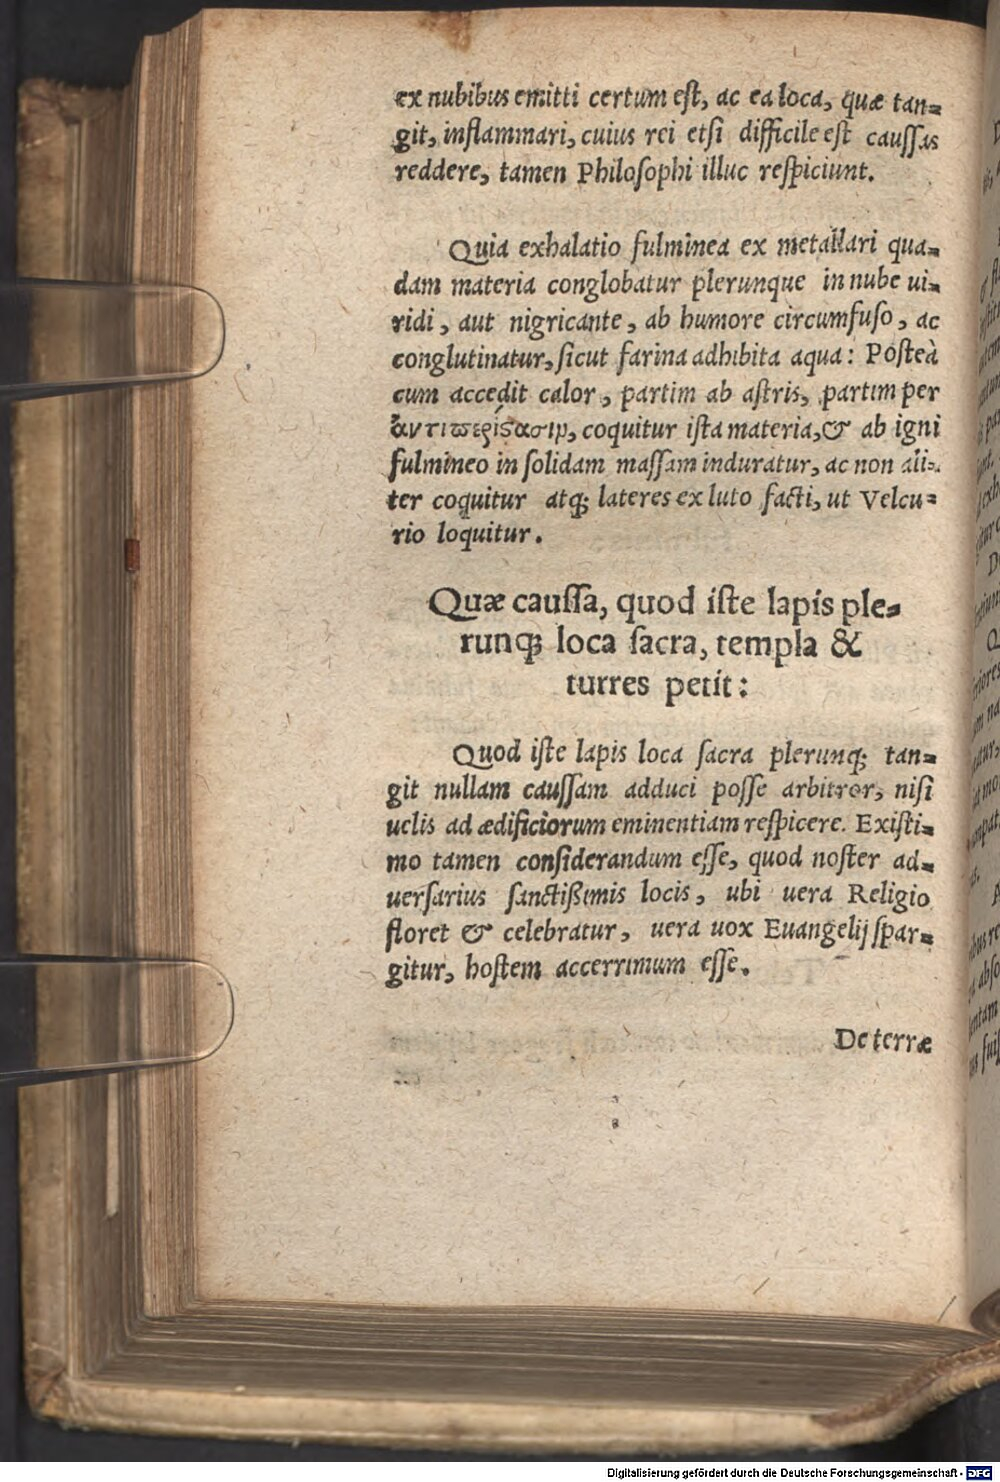 ex nubibus emitti certum eſt, ac ea loca, quæ tan⸗
git, inflammari, cuius rei etſi difficile eſt cauſſas
reddere, tamen Philoſophi illuc reſpiciunt.
Quia exhalatio fulminea ex metallari qua⸗
dam materia conglobatur plerunque in nube ui⸗
ridi, aut nigricante, ab humore circumfuſo, ac
conglutinatur, ſicut farina adhibita aqua: Poſteà
cum accedit calor, partim ab aſtris, partim per
ἀντιπερίϛασιν, coquitur iſta materia, & ab igni
fulmineo in ſolidam maſſam induratur, ac non ali⸗
ter coquitur atq; lateres ex luto facti, ut Velcu⸗
rio loquitur.
Quæ cauſſa, quod iſte lapis ple⸗
runq; loca ſacra, templa &
turres petit:
Quod iſte lapis loca ſacra plerunq; tan⸗
git nullam cauſſam adduci poſſe arbitror, niſi
uelis ad ædificiorum eminentiam reſpicere. Exiſti⸗
mo tamen conſiderandum eſſe, quod noſter ad⸗
uerſarius ſanctißimis locis, ubi uera Religio
floret & celebratur, uera uox Euangelij ſpar⸗
gitur, hoſtem accerrimum eſſe.
De terræ
Digitalisierung gefördert durch die Deutsche Forschungsgemeinschaft - DFG